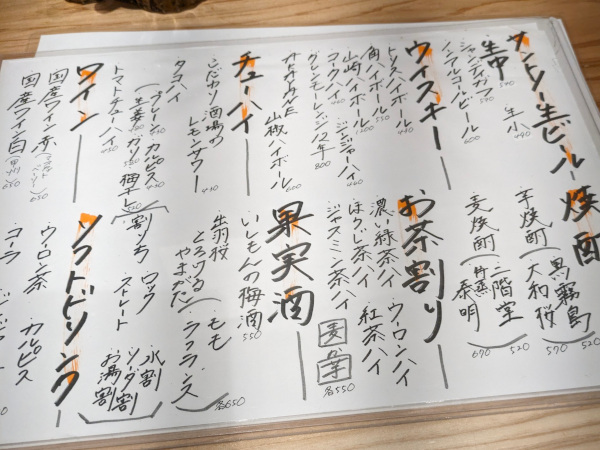 サントリー生ビール
生中 590
生小 490
シャンディガフ 590
ノンアルコールビール 600
ウイスキー
トリスハイボール 490
角ハイボール 550
山崎ハイボール 1200
ジンジャーハイ
コークハイ
グレンモーレンジ12年 800
山椒ハイボール 600
チューハイ
こだわり酒場のレモンサワー 490
タコハイ
プレーン カルピス 490
生姜 ガリ 梅干し
トマトチューハイ 450
ワイン
国産ワイン赤
国産ワイン白 650
焼酎
芋焼酎
黒霧島 520
大和桜 570
麦焼酎
二階堂 520
泰明 670
お茶割り
濃い緑茶ハイ ウーロンハイ
ほうじ茶ハイ 紅茶ハイ
ジャスミン茶ハイ
麦 芋 各550
果実酒
いしもんの梅酒 550
出羽桜
とろけるやまがた
モモ
ラフランス
各650
割り方
ロック
ストレート
水割
ソーダ割
お湯割
ソフトドリンク
ウーロン茶 カルピス
コーラ